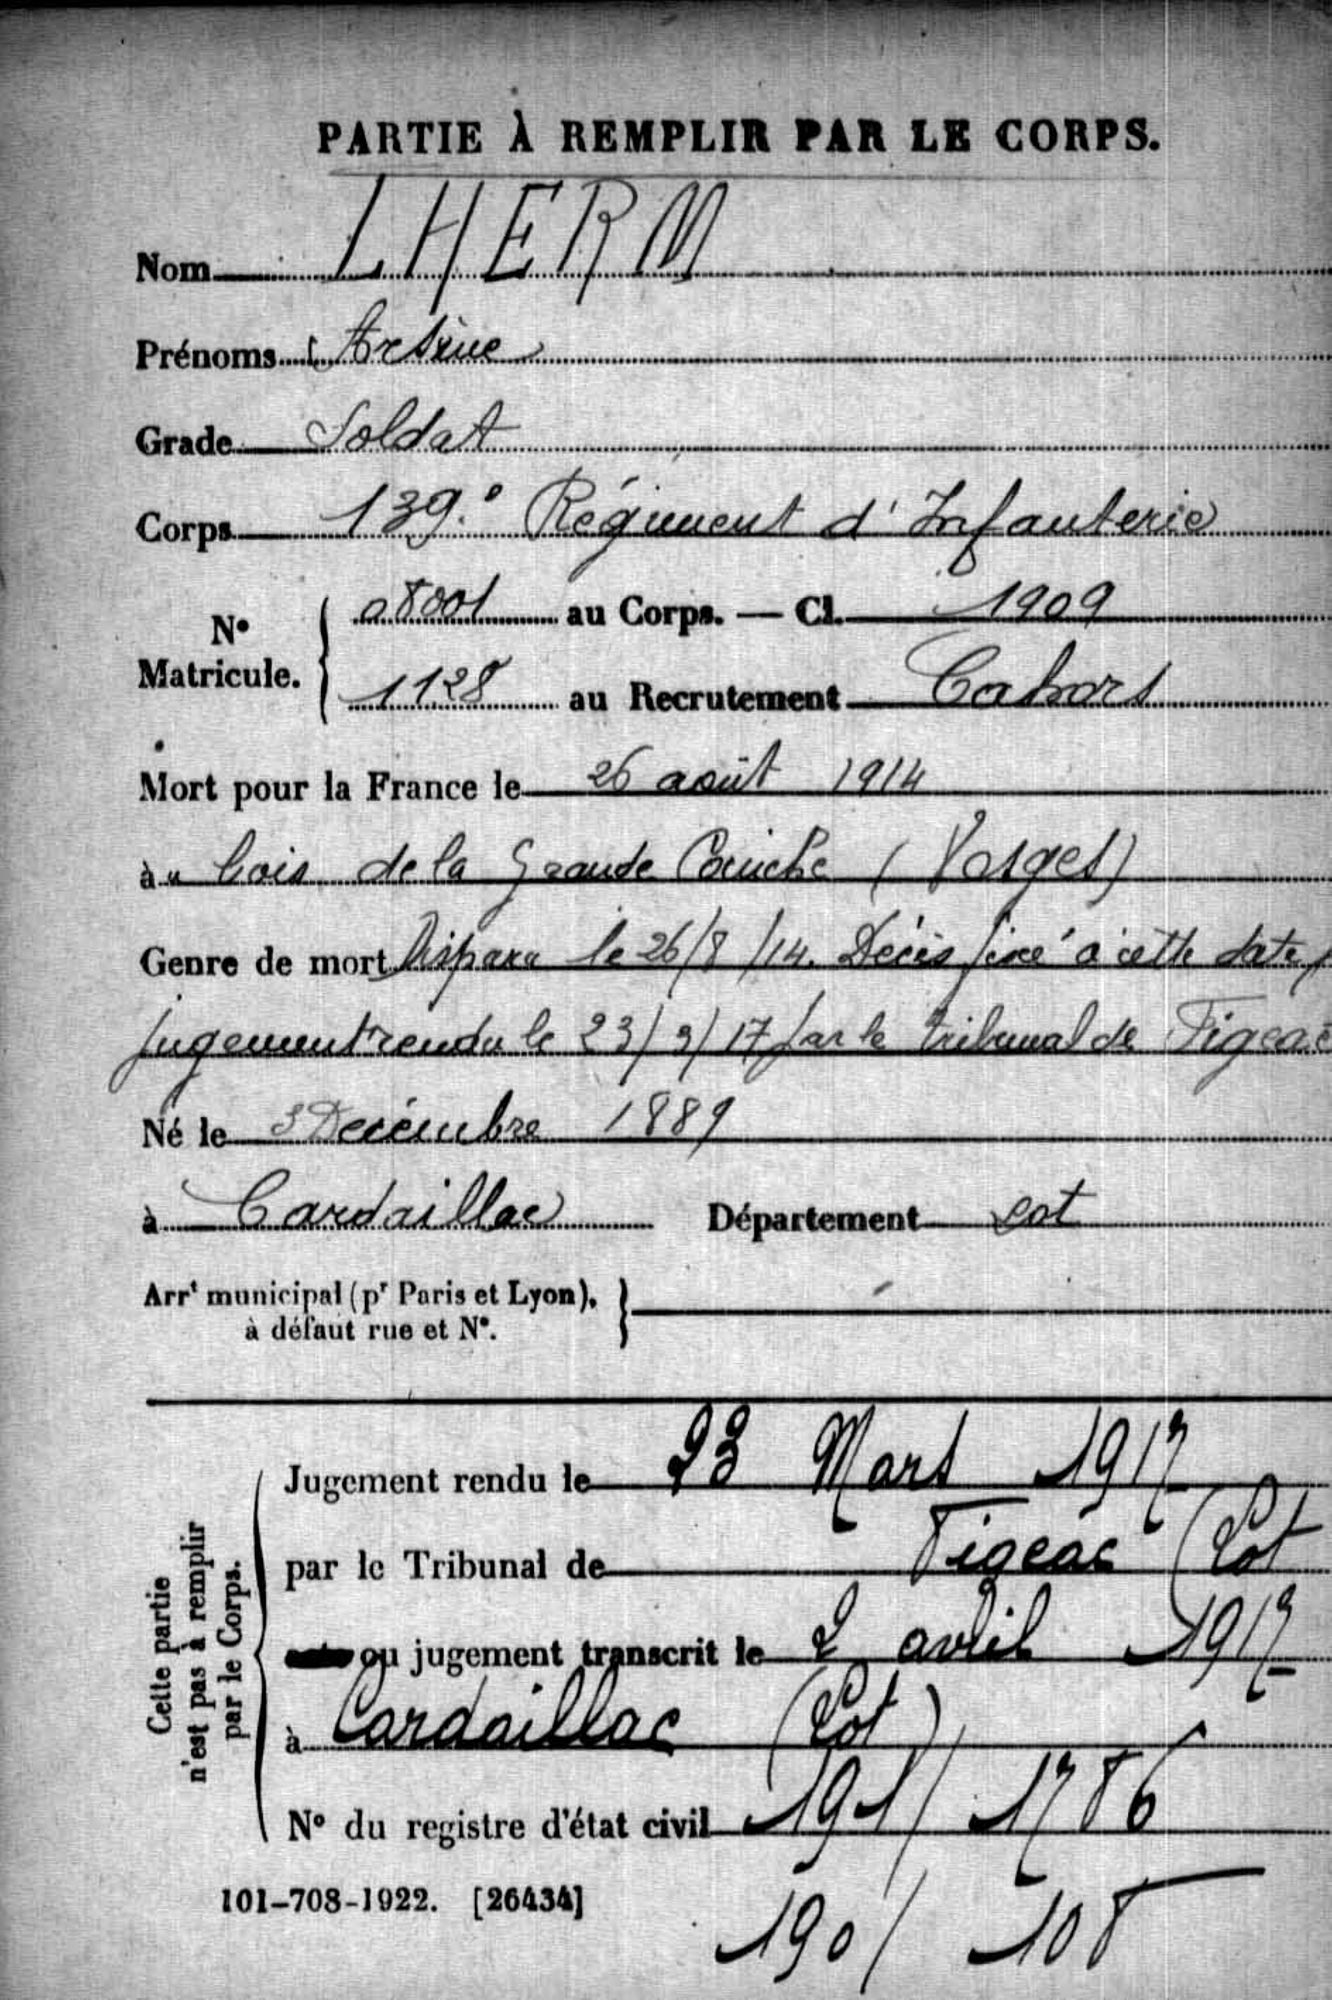 PARTIE À REMPLIR PAR LE CORPS.
Nom LHERM
Prénoms Arsène
Grade Soldat
Corps 139e Régiment d'Infanterie
N° Matricule. 08001 au Corps. — Cl. 1909
1128 au Recrutement Cahors
Mort pour la France le 26 août 1914
à bois de la Grande (Vosges)
Genre de mort Disparu le 26/8/14. Décès fixé à cette date
jugement rendu le 23/3/17 par le tribunal de Figeac
Né le 3 Décembre 1889
à Cardaillac Département Lot
Arrt municipal (pr Paris et Lyon),
à défaut rue et N°.
Cette partie
n'est pas à remplir
par le Corps.
Jugement rendu le 23 Mars 1917
par le Tribunal de Figeac (Lot
ou jugement transcrit le 2 avril 1917
à Cardaillac (Lot)
N° du registre d'état civil 191/1786
101-708-1922. [26434]
190/108